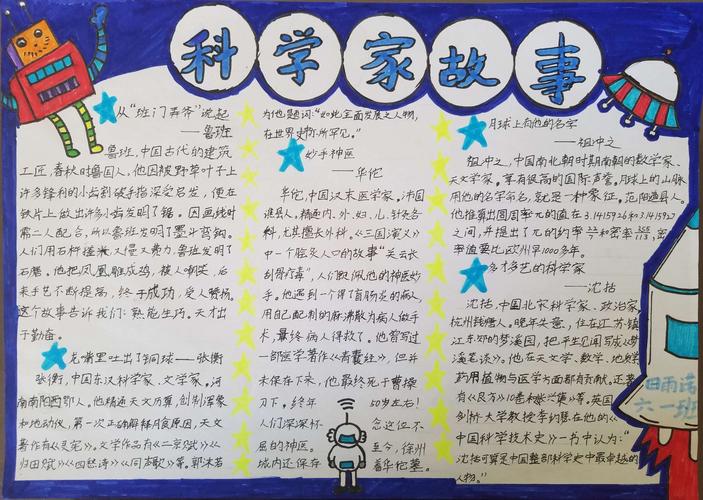 科学家故事
从“班门弄斧”说起
——鲁班
鲁班,中国古代的建筑
工匠,春秋时鲁国人,他因被野草叶子上
许多锋利的小齿割破手指深受启发,便在
铁片上做出许多小齿发明了锯。因画线时
需二人配合,所以鲁班发明了墨斗弯钩。
人们用石杵捣米又慢又费力,鲁班发明了
石磨。他把凤凰雕成鸡,被人嘲笑,后
来手艺不断提高,终于成功,受人赞扬。
这个故事告诉我们:熟能生巧。天才出
于勤奋。
龙嘴里吐出了铜球——张衡
张衡,中国东汉科学家、文学家。河
南南阳西鄂人。他精通天文历算,创制浑象
和地动仪,第一次正确解释月食原因,天文
著作有《灵宪》。文学作品有《二京赋》《
归田赋》《四愁诗》《同声歌》等。郭沫若
为他题词:“如此全面发展之人物,
在世界史中亦所罕见。”
妙手神医
——华佗
华佗,中国汉末医学家。沛国
谯县人。精通内、外、妇、儿、针灸各
科,尤其擅长外科。《三国演义》
中一个脍炙人口的故事“关云长
刮骨疗毒”,人们叙佩他的神医妙
手。他遇到一个得了盲肠炎的病人,
用自己配制的麻沸散为病人做手
术,最终病人得救了。他曾写过
一部医学著作《青囊经》,但并
未保存下来,他最终死于曹操
刀下,终年50岁左右!
人们深深怀念这位不
屈的神医。至今,徐州
城内还保存着华佗墓。
月球上有他的名字
——祖冲之
祖冲之,中国南北朝时期南朝的数学家、
天文学家。享有很高的国际声誉。月球上的山脉
用他的名字命名,就是一种象征。范阳遒县人。
他推算出圆周率π的值在3.1415926和3.1415927
之间,并提出了π的约率22/7和密率355/113,密
率值要比欧州早1000多年。
多才多艺的科学家
——沈括
沈括,中国北宋科学家、政治家,
杭州钱塘人。晚年失意,住在江苏镇
江东郊的梦溪园,把平生见闻写成《梦
溪笔谈》。他在天文学、数学、地质学
药用植物与医学方面都有贡献。还著
有《良方》10卷和张兴贤》等。英国
剑桥大学教授李约瑟在他的《
中国科学技术史》一书中认为:“
沈括可算是中国整部科学史中最卓越的
人物。”
田雨诺
六一班